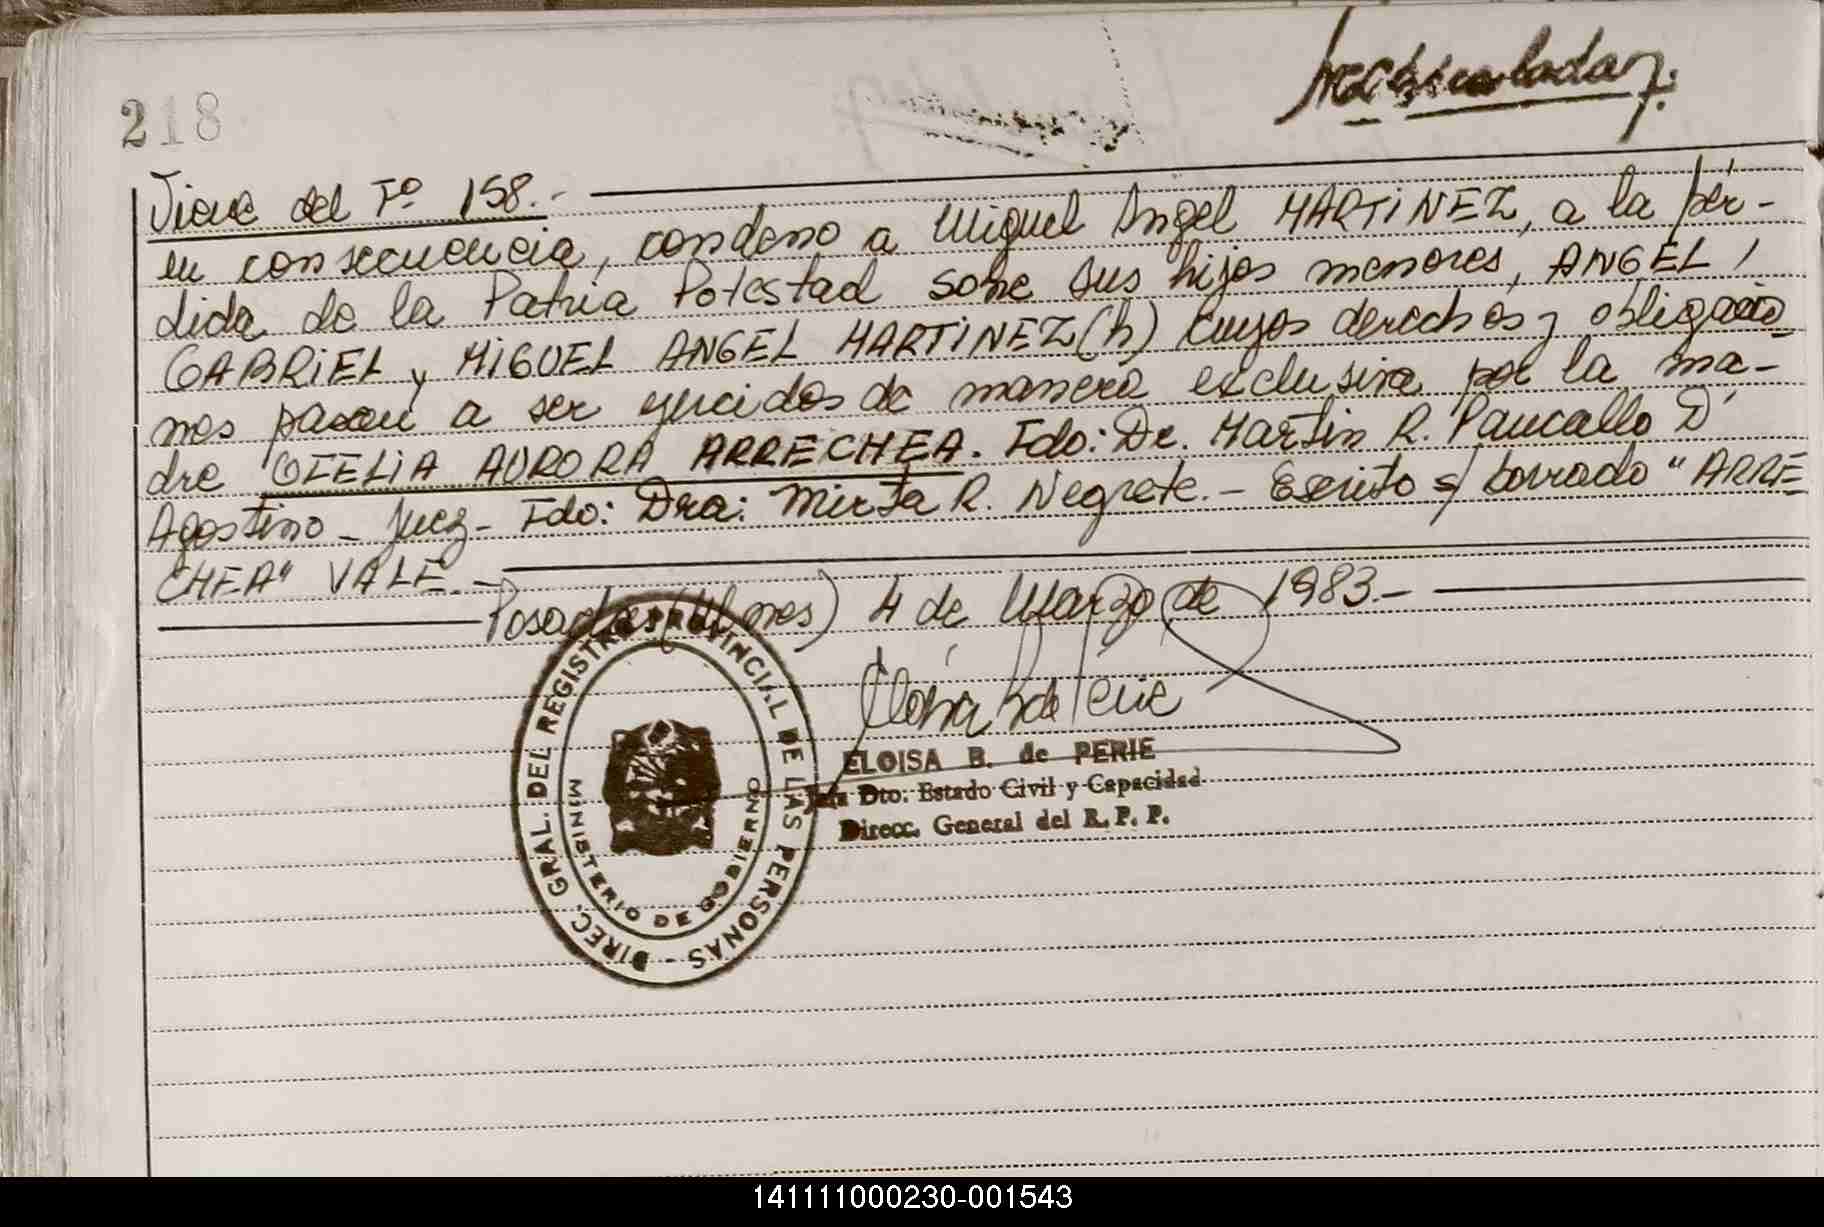 218
Viene del Fº 158.-
en consecuencia, condeno a Miguel Angel MARTINEZ, a la pér-
dida de la Patria Potestad sobre sus hijos menores, ANGEL,
GABRIEL y MIGUEL ANGEL MARTINEZ (h) cuyos derechos y obligacio-
nes pasan a ser ejercidos de manera exclusiva por la ma-
dre OFELIA AURORA ARRECHEA. Fdo: Dr. Martin R. Paucallo D'
Agostino - Juez - Fdo: Dra: Mirta R. Negrete. - Escrito s/ borrado "ARRE
CHEA" VALE. -
Posadas (Mnes) 4 de Marzo de 1983.-
ELOISA B. de PERIE
Jefa Dto. Estado Civil y Capacidad
Direcc. General del R. P. P.
DIREC. GRAL. DEL REGISTRO PROVINCIAL DE LAS PERSONAS -
MINISTERIO DE GOBIERNO
141111000230-001543